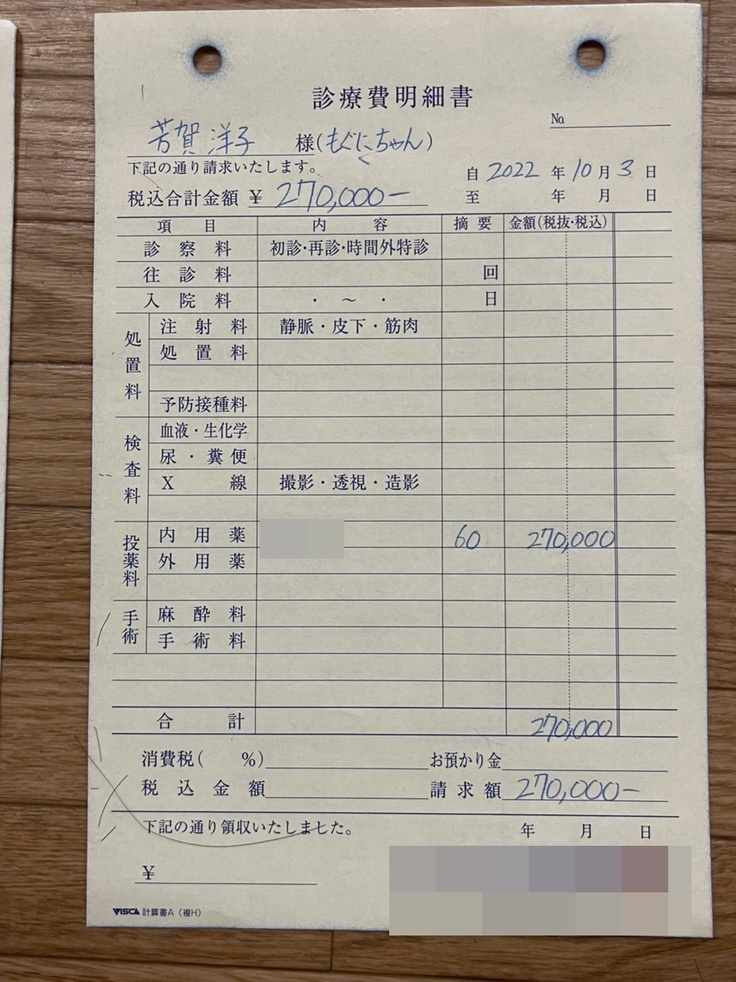 診療費明細書
No.
芳賀 洋子 様(もぐにちゃん)
下記の通り請求いたします。
自 2022 年 10 月 3 日
税込合計金額 ¥ 270,000−
至 年 月 日
項目 内容 摘要 金額(税抜・税込)
診察料 初診・再診・時間外特診
往診料 回
入院料 ・ 〜 ・ 日
処置料
注射料 静脈・皮下・筋肉
処置料
予防接種料
検査料
血液・生化学
尿・糞便
X線 撮影・透視・造影
投薬料
内用薬 60 270,000
外用薬
手術
麻酔料
手術料
合計 270,000
消費税( %) お預かり金
税込金額 請求額 270,000−
下記の通り領収いたしました。 年 月 日
¥
VISCA 計算書A(複H)